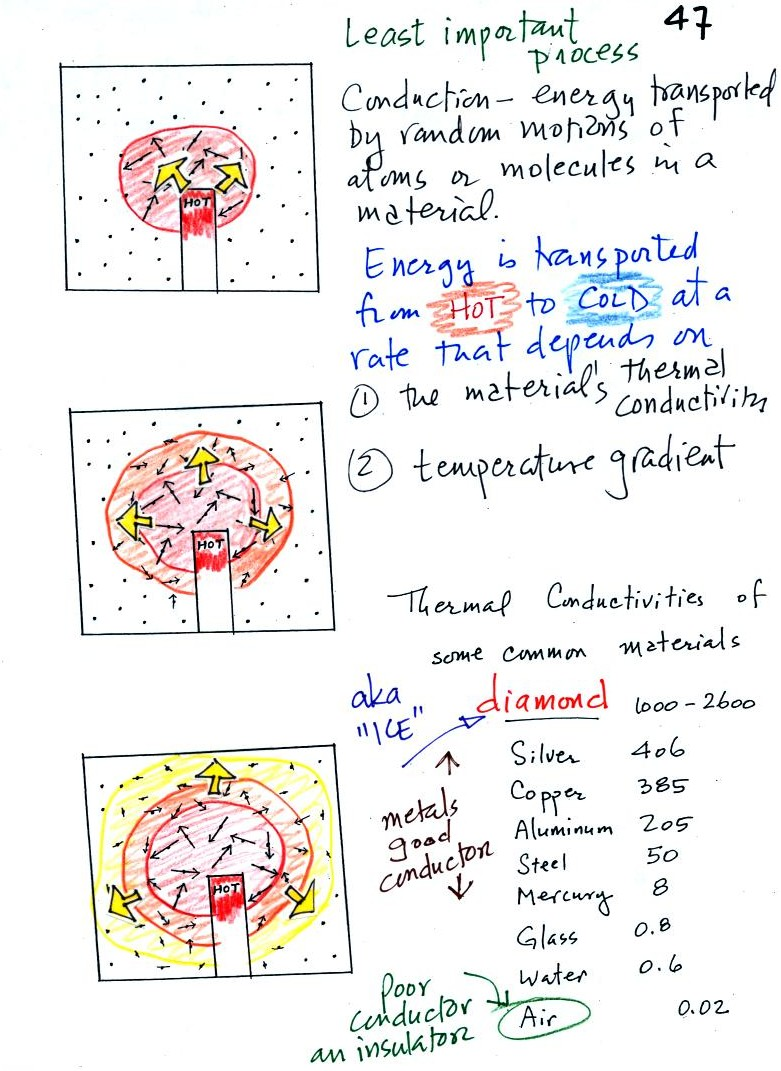 47
Least important
process
Conduction - energy transported
by random motions of
atoms or molecules in a
material.
Energy is transported
from HOT to COLD at a
rate that depends on
① the material's thermal
conductivity
② temperature gradient
HOT
HOT
HOT
Thermal Conductivities of
some common materials
aka
"ICE"
diamond 1000 - 2600
Silver 406
Copper 385
Aluminum 205
Steel 50
Mercury 8
Glass 0.8
Water 0.6
Air 0.02
metals
good
conductor
Poor
conductor
an insulator